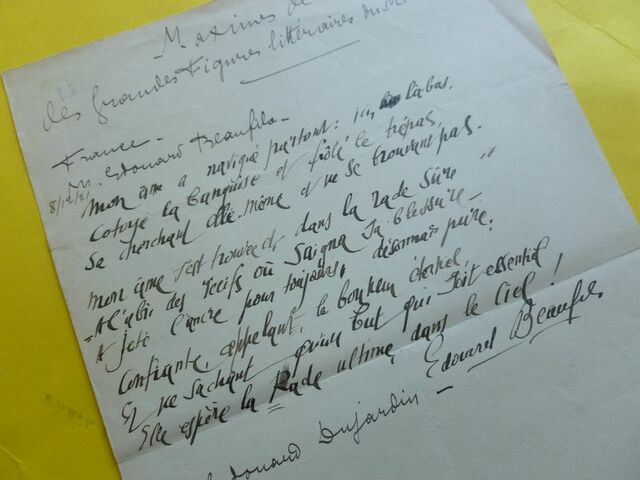 Maximes de
des Grandes Figures littéraires du M
France -
M. Edouard Beaufils -
8/12/21.
Mon âme a navigué partout : ici là bas.
Cotoyé la banquise et frôlé le trépas,
Se cherchant elle-même et ne se trouvant pas.
Mon âme s'est trouvée et, dans la rade sûre
- A l'abri des récifs où saigna sa blessure -
A jeté l'ancre pour toujours, désormais pure.
Confiante, appelant, le bonheur éternel
Et ne sachant qu'un but qui soit essentiel
Elle espère la Rade ultime, dans le Ciel !
Edouard Beaufils
Edouard Dujardin -